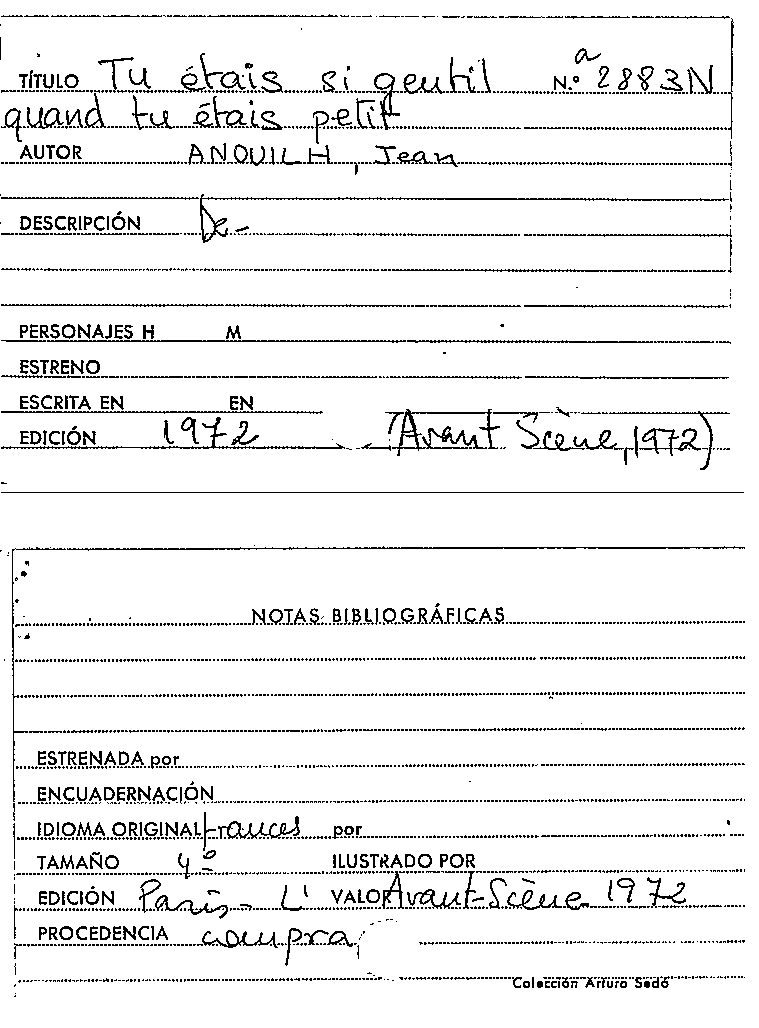 TÍTULO Tu étais si gentil N.º a 2883N
quand tu étais petit
AUTOR ANOUILH, Jean
DESCRIPCIÓN De-
PERSONAJES H M
ESTRENO
ESCRITA EN EN
EDICIÓN 1972 (Avant Scène, 1972)
NOTAS BIBLIOGRÁFICAS
ESTRENADA por
ENCUADERNACIÓN
IDIOMA ORIGINAL frances por
TAMAÑO 4º ILUSTRADO POR
EDICIÓN Paris - L' VALOR Avant-Scène 1972
PROCEDENCIA compra
Colección Arturo Sedó